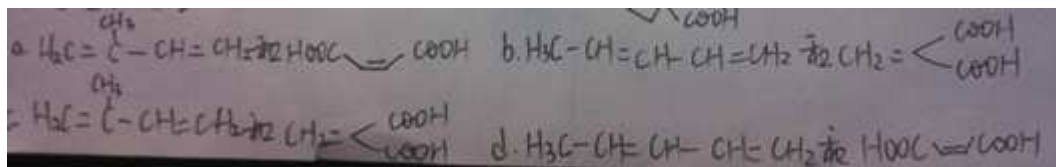 COOH
CH₃
a. H₂C=C-CH=CH₂和HOOC COOH b. H₃C-CH=CH-CH=CH₂和CH₂= COOH
COOH
CH₃
H₂C=C-CH=CH₂和CH₂= COOH
COOH
d. H₃C-CH=CH-CH=CH₂和 HOOC COOH